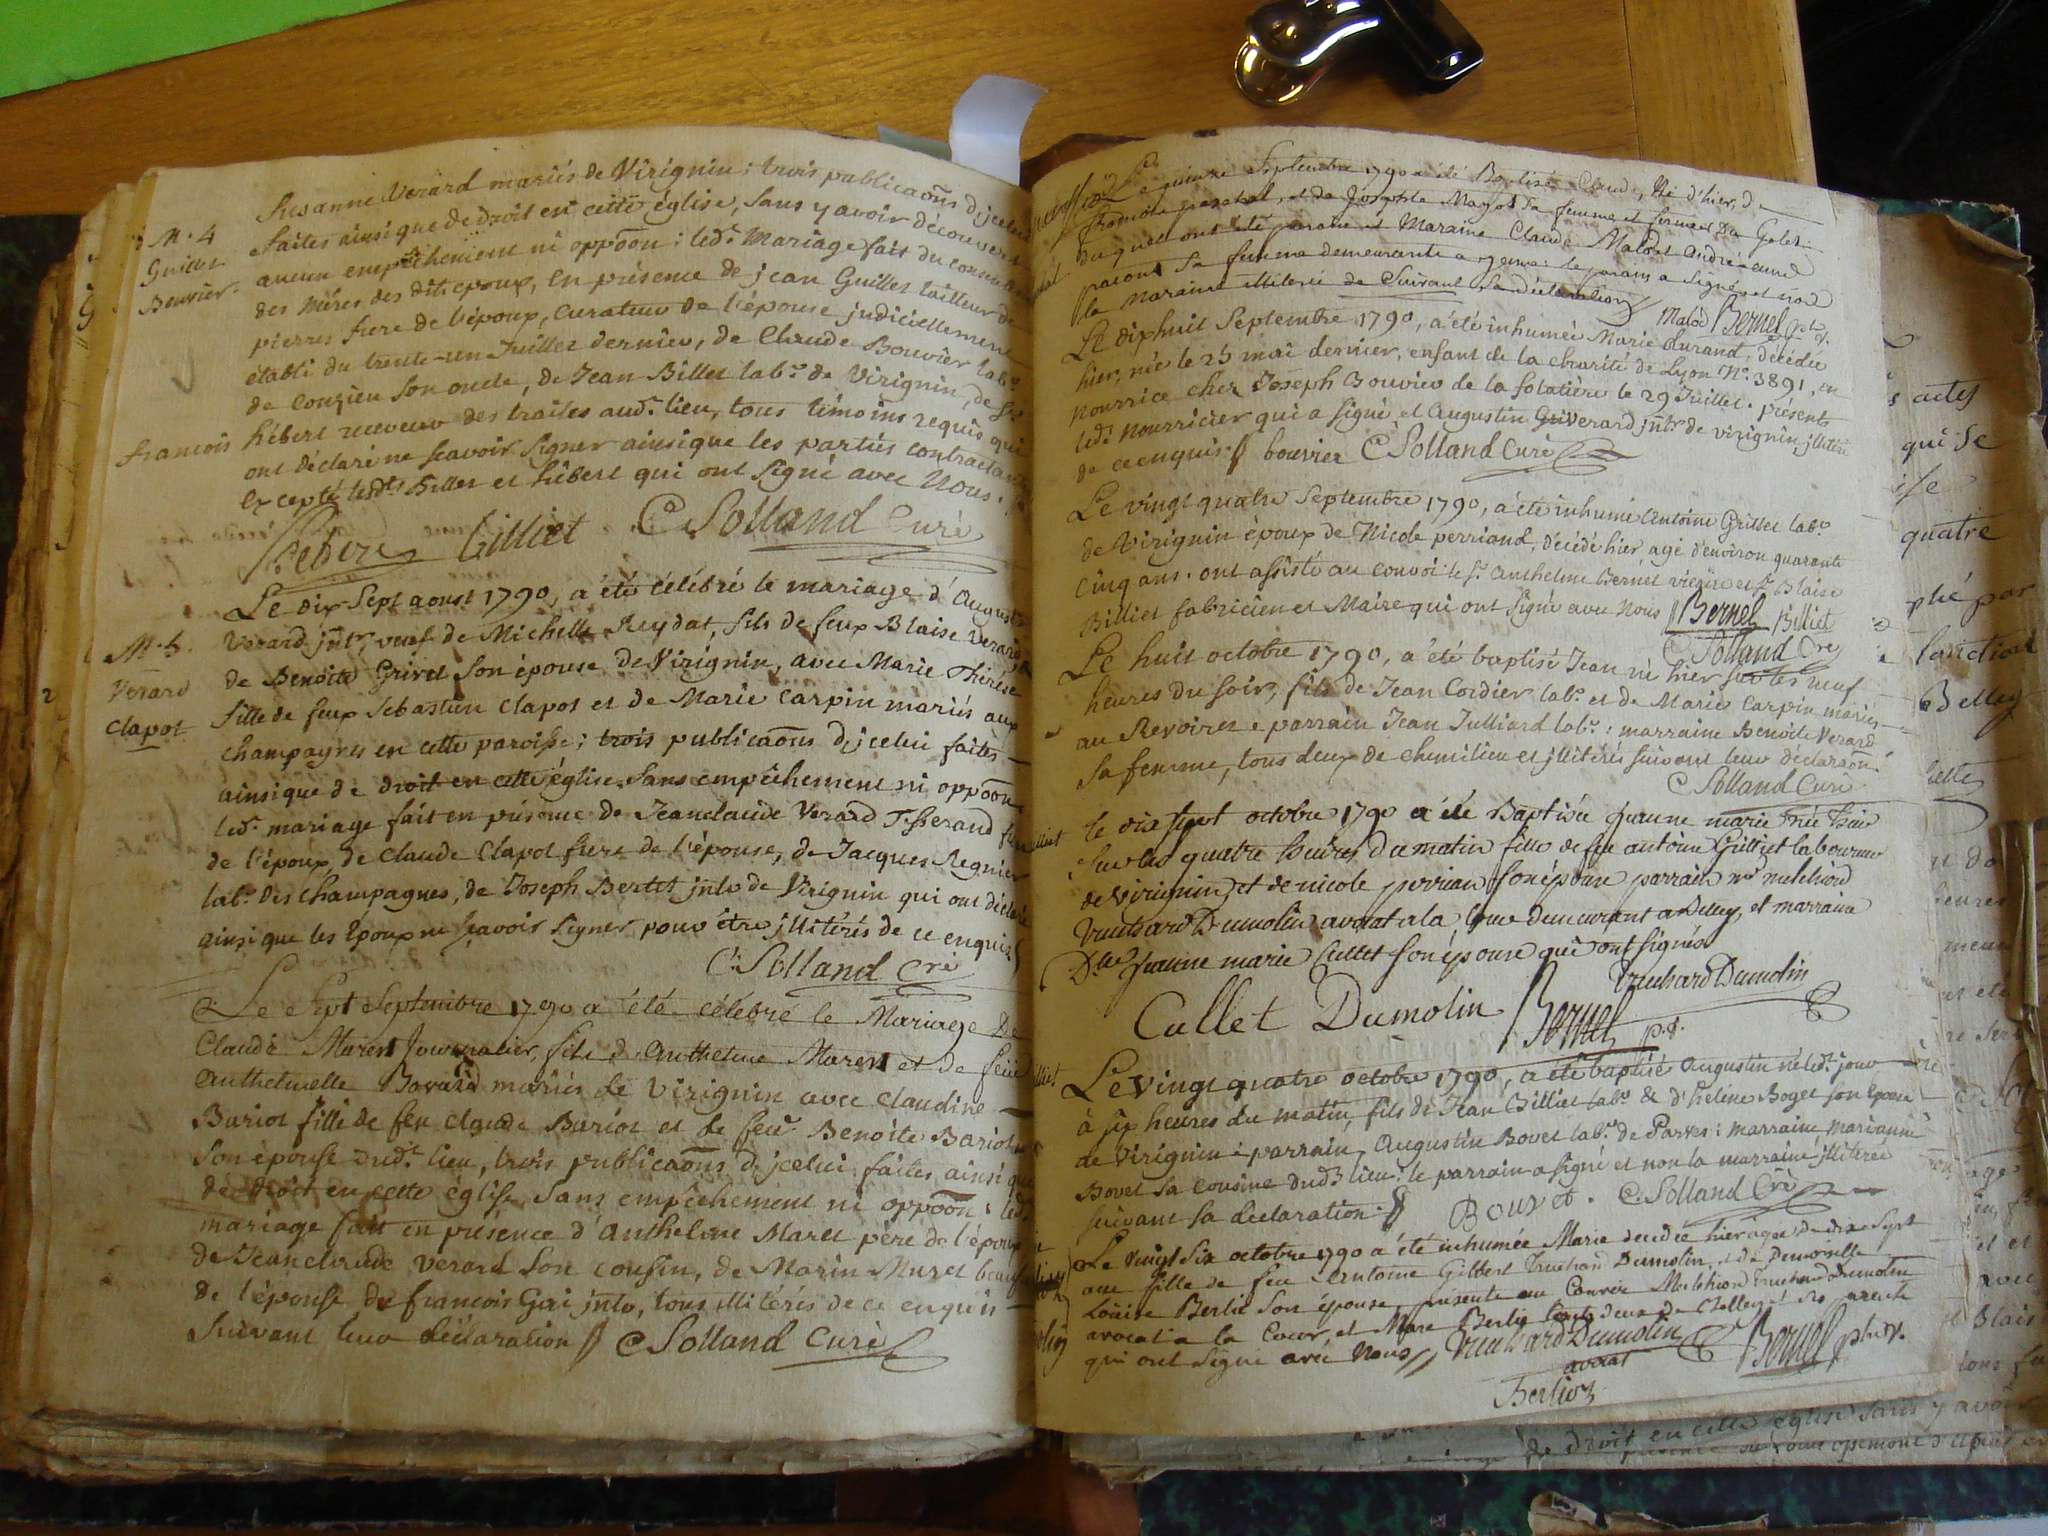 Susanne Verard mariés de Virignin ; trois publicaõns d'jcelui
M. 4
Guillet
Bouvier.
faites ainsique de droit en cette église, sans y avoir découvert
aucun empêchement ni oppõon ; led.t Mariage fait du consen
des Mères des dits epoux, en présence de jean Guillet tailleur de
pierres frere de l'époux, curateur de l'épouse judiciellement
établi du trente-un Juillet dernier, de Claude Bouvier lab.r
de Conzieu son oncle, de Jean Billet lab.r de Virignin, de Sr
françois hébert receveur des traites aud.t lieu, tous témoins requis qui
ont déclaré ne scavoir signer ainsique les parties contractan
Excepté lesd.ts Billet et hébert qui ont signé avec Nous.
hebert Billiet C Solland Curé
Le dix-Sept aoust 1790, a été célébré le mariage d'August
M. 5.
Verard
Clapot
Verard jnlr, veuf de Michelle Reydat, fils de feux Blaise Verard
de Benoite Grivet son épouse de Virignin, avec Marie Thérèse
fille de feux Sébastien Clapot et de Marie Carpin mariés aux
champagnes en cette paroisse ; trois publicaõns d'jcelui faites
ainsique de droit en cette église sans empêchement ni oppõon
led.t mariage fait en présence de Jeanclaude Verard Tisserand
de l'époux, de Claude Clapot frere de l'épouse, de Jacques Regnier
lab.r des Champagnes, de Joseph Bertet jnlr de Virignin qui ont déclaré
ainsi que les Epoux ne sçavoir signer pour être jllitérés de ce enquis
C. Solland cré
Le Sept Septembre 1790 a été célébré le Mariage De
Claude Maret Journalier, fils d'Anthelme Maret et de feüe
Anthelmette Bovard mariés de Virignin avec Claudine
Bariot fille de feu claude Bariot et de feüe Benoite Bariot
Son épouse dud.t lieu, trois publicaõns d'jcelui faites ainsi que
de droit en cette église, sans empêchement ni oppõon ; led.
mariage fait en présence d'Anthelme Maret père de l'époux
de Jeanclaude Verard son cousin, de Marin Muret beauf
de l'épouse de françois Goi jnlr, tous illitérés de ce enquis
suivant leur déclaration C Solland Curé
Le quinze Septembre 1790 a été Baptisé Claude, Né d'hier, de
et de Josephte Magot sa femme
duquel ont été parain et Maraine Claude Malod et Andréanne
sa femme demeurants a le parain a signé et non
la Maraine illiterée de Suivant sa déclaration Malod Bernel ptr.
Le dixhuit Septembre 1790, a été inhumée Marie durand, décédée
hier, née le 25 mai dernier, enfant de la charité de Lyon N.o 3891, en
nourrice chez Joseph Bouvier de la folatière le 29 Juillet. présents
led.t nourricier qui a signé et Augustin Verard jnlr de virignin, jllitéré
de ce enquis bouvier C Solland Curé
Le vingt quatre Septembre 1790, a été inhumé Antoine Grillet lab.r
de Virignin époux de Nicole perriand, décédé hier agé d'environ quarante
Cinq ans. ont assisté au convoi le Sr. Anthelme Bernel vicaire et Sr Blaise
Billiet fabricien et Maire qui ont signé avec Nous Bernel Billiet
C Solland Cré
Le huit octobre 1790, a été baptisé Jean né hier sur les neuf
heures du soir, fils de Jean Cordier lab.r et de Marie Carpin mariés
au Revoiret parrain Jean Julliard lab.r : marraine Benoite Verard
sa femme, tous deux de chemilieu et jllitérés suivant leur déclaraõn.
C Solland Curé
Le dix sept octobre 1790 a été Baptisée jeanne marie née hier
sur les quatre heures du matin fille de feu antoine Grilliet laboureur
de virignin et de nicole perrian son épouse parrain mr melchiord
truchard Dumolin avocat a la Cour demeurant a Belley, et marraine
Dlle jeanne marie Cullet son épouse qui ont signés
truchard Dumolin
Cullet Dumolin Bernel p.t.
Le vingt quatre octobre 1790, a été baptisé Augustin né led.t jour
à six heures du matin, fils de Jean Billiet lab.r & d'helene Boget son Epouse
de Virignin : parrain Augustin Bovet lab.r de Parves : marraine Marianne
Bovet sa cousine dud.t lieu : le parrain a signé et non la marraine jllitérée
suivant sa déclaration. Bouvet. C. Solland Cré
Le vingt six octobre 1790 a été inhumée Marie décédée hier agée de dix Sept
ans fille de feu Antoine Gilbert Truchard Dumolin, et de Demoiselle
Louise Berlie Son épouse, présents au Convoi Melchiord Truchard Dumolin
avocat a la Cour, et Marc Berliz tous deux de Belley et
qui ont Signé avec Nous truchard Dumolin Bernel ptre.
avocat
Berlioz
actes
qui se
quatre
plié par
Belley
de droit en cette église sans y avoir